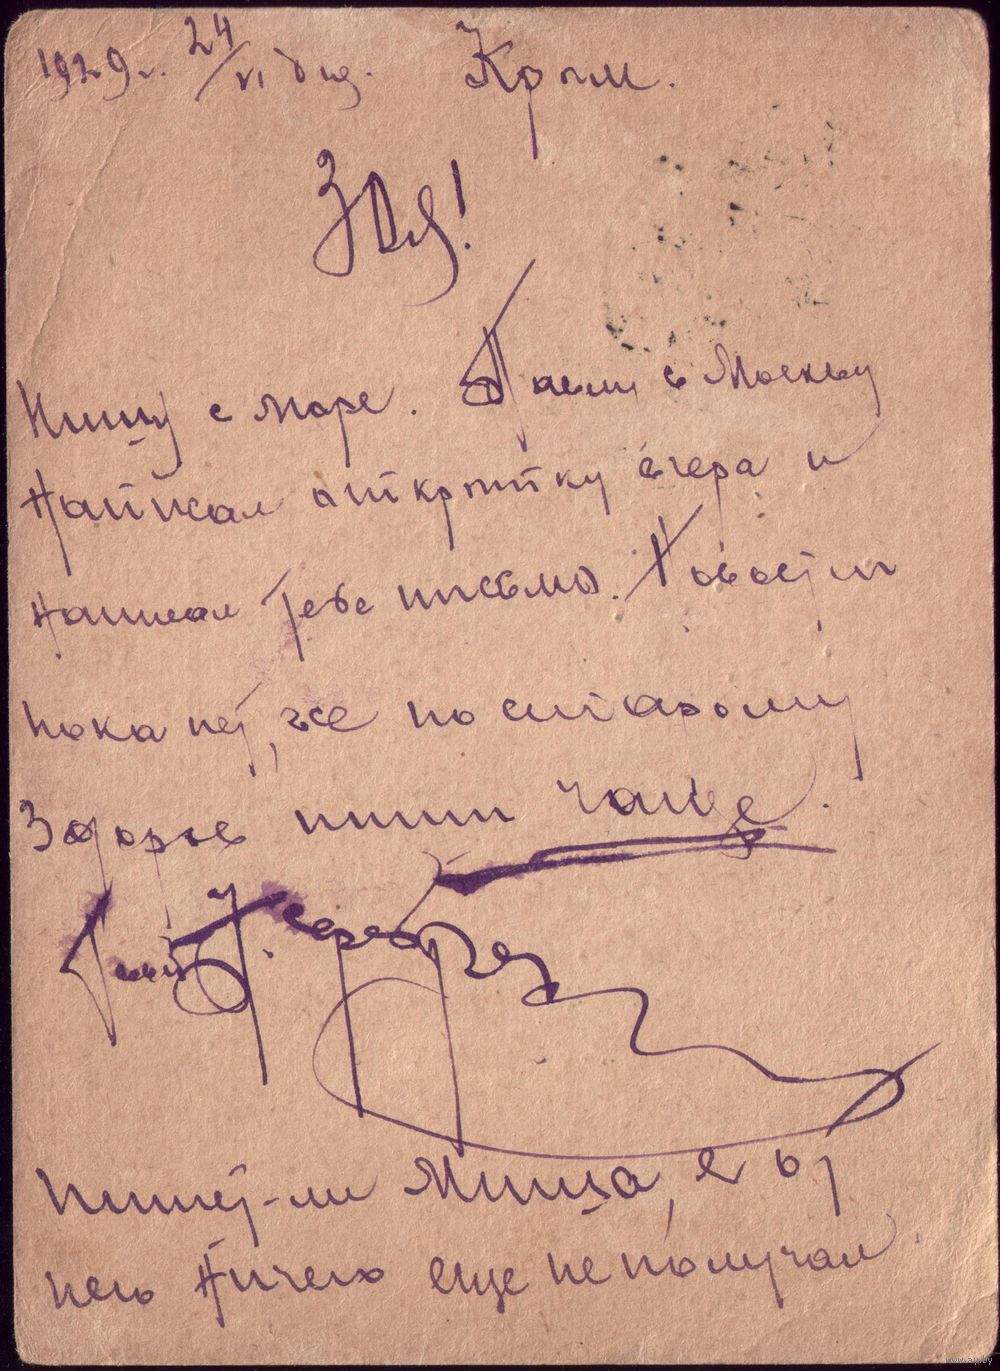 1929 г. 24/VI дня. Крым.
Зоя!
Пишу с море. в Москву
Написал открытку вчера и
написал Тебе письмо. Новостей
пока нет, все по старому
Здоров пиши чаще.
Пишет-ли Миша, я от
него ничего еще не получал.